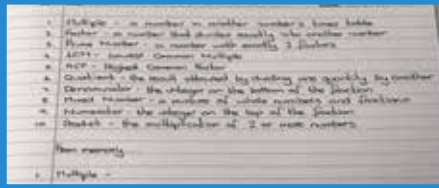 1. Multiple - a number in another number's times table
2. Factor - a number that divides exactly into another number
3. Prime Number - a number with exactly 2 factors
4. LCM - Lowest Common Multiple
5. HCF - Highest Common Factor
6. Quotient - the result obtained by dividing one quantity by another
7. Denominator - the integer on the bottom of the fraction
8. Mixed Number - a mixture of whole numbers and fractions
9. Numerator - the integer on the top of the fraction
10. Product - the multiplication of 2 or more numbers
From memory...
1. Multiple -